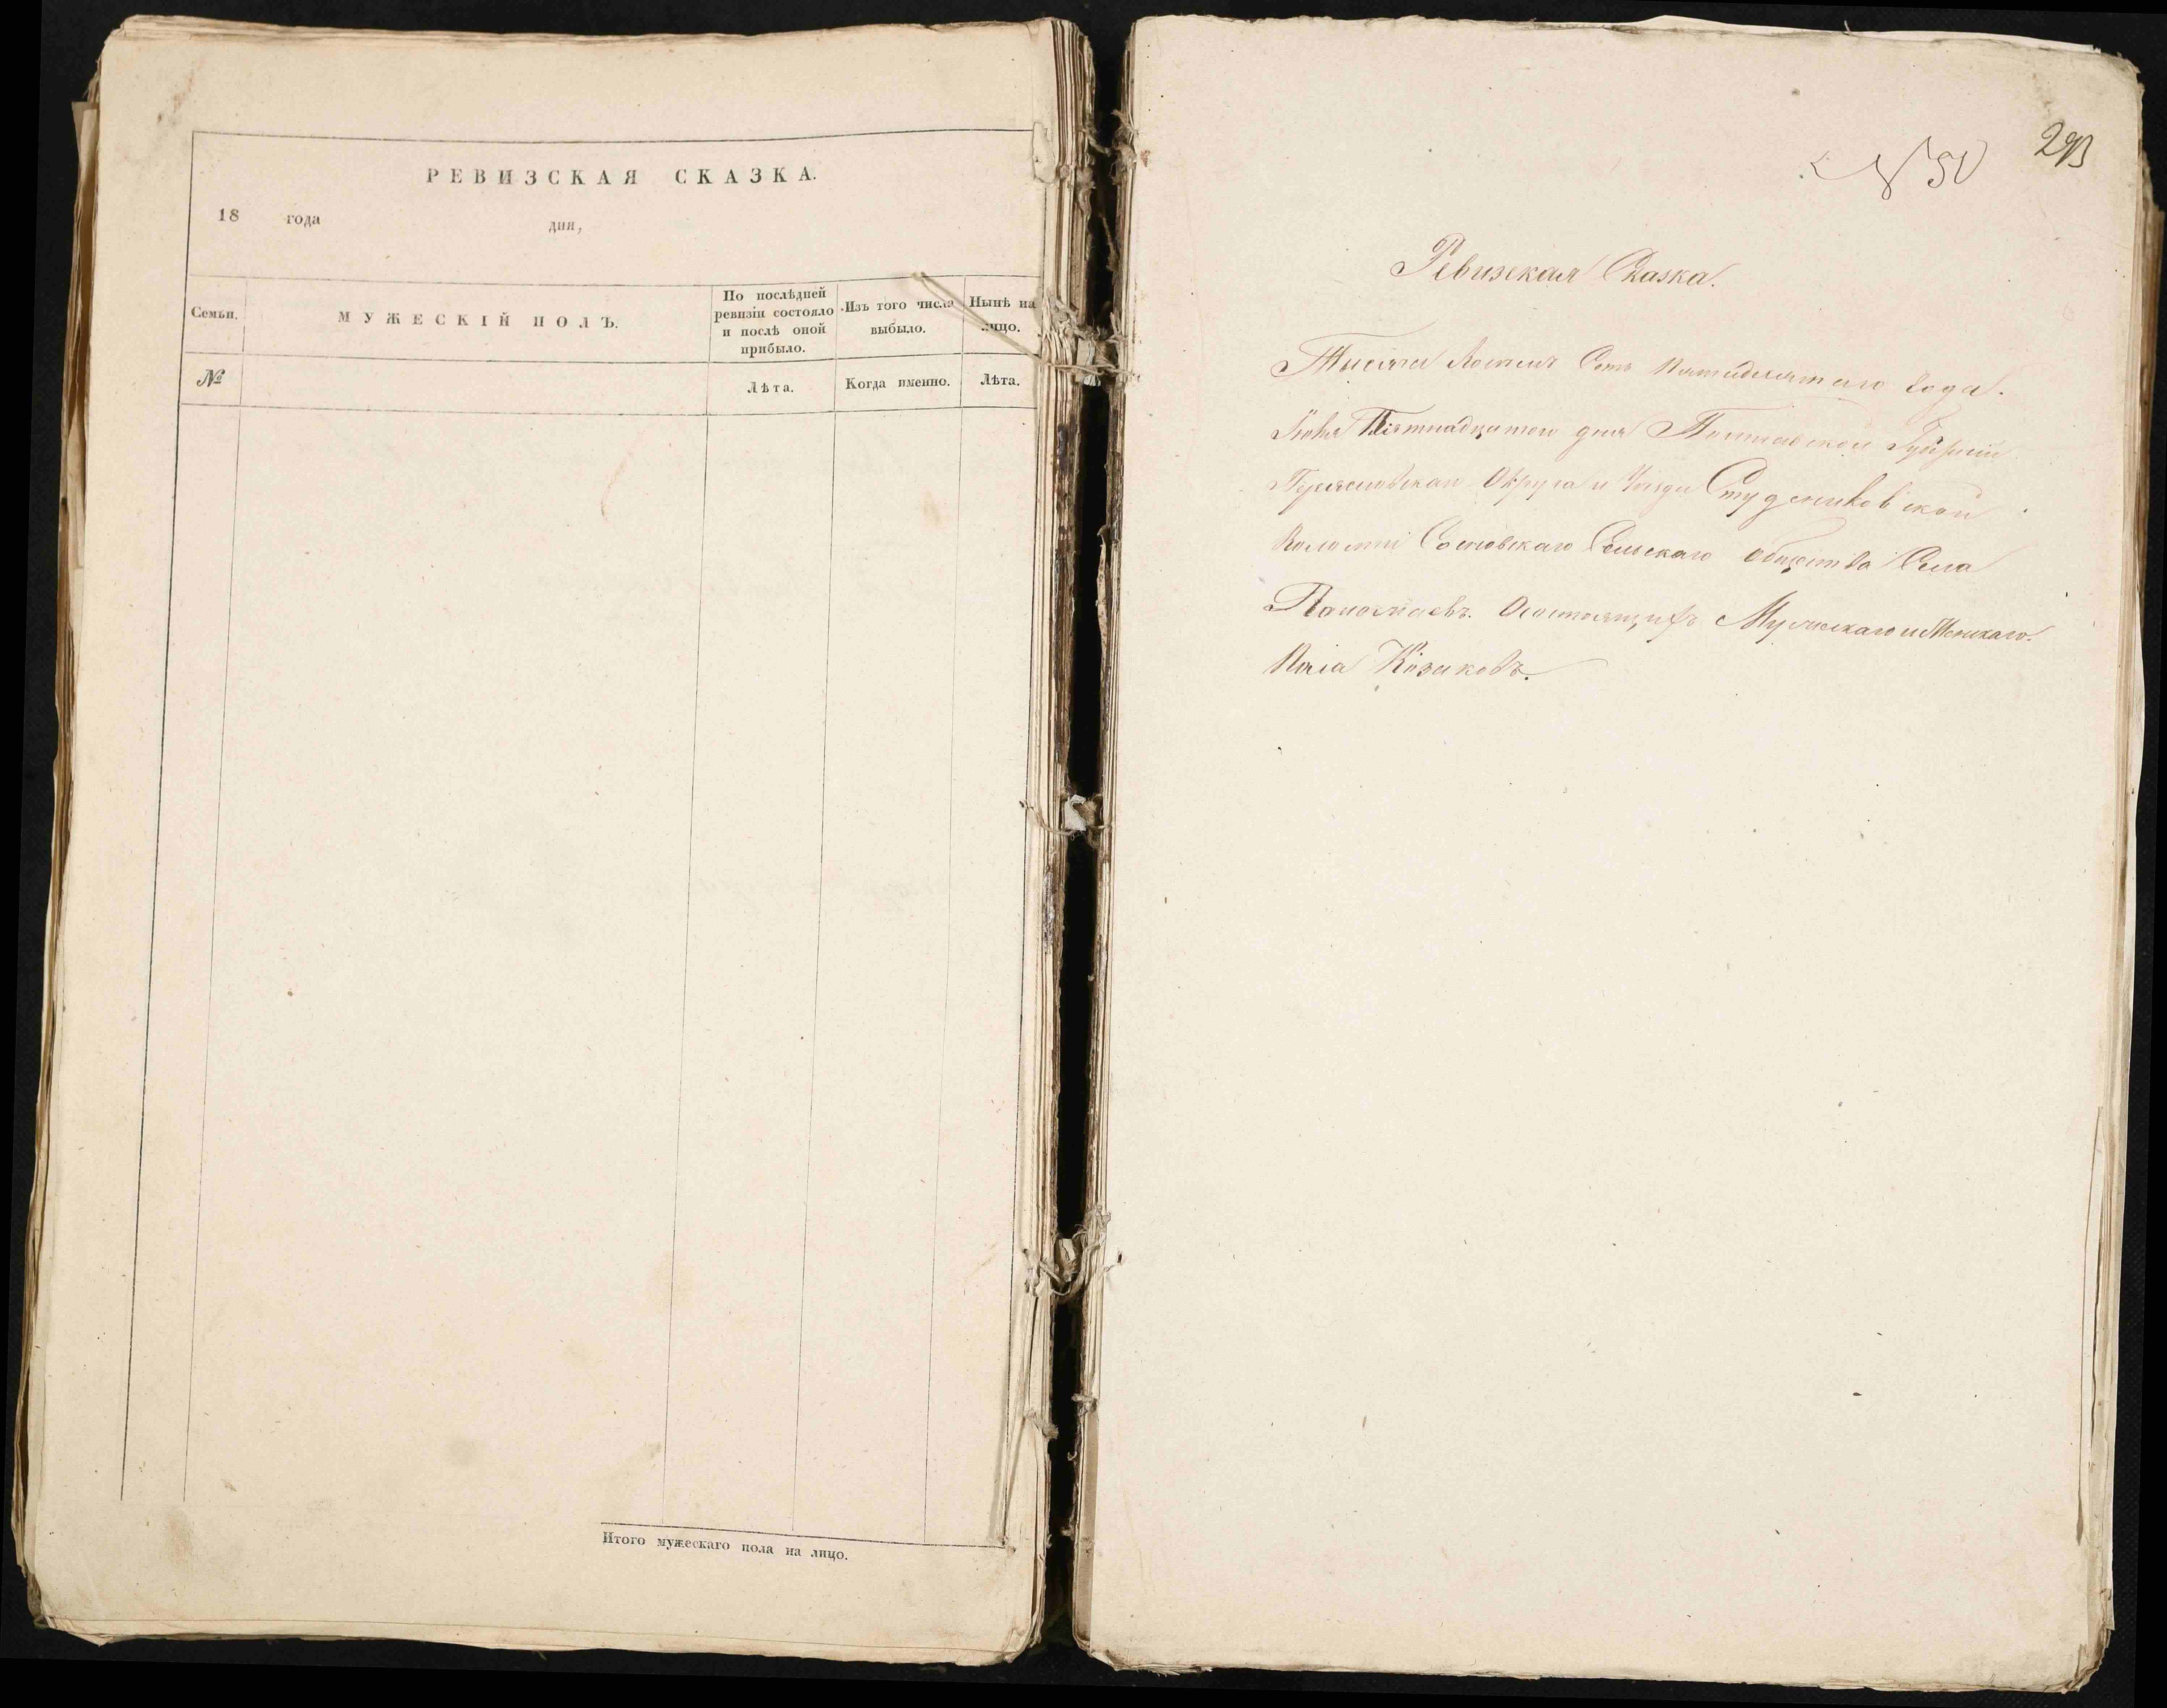 РЕВИЗСКАЯ СКАЗКА.
18 года дня,
Семьи.
МУЖЕСКІЙ ПОЛЪ.
По послѣдней
ревизіи состояло
и послѣ оной
прибыло.
Изъ того числа
выбыло.
Нынѣ на
лицо.
№
Лѣта.
Когда именно.
Лѣта.
Итого мужескаго пола на лицо.
293
№ 50
Ревизская Сказка.
Тысяча Восемь Сотъ Пятидесятаго Года.
Пятнадцатого дня Полтавской Губерніи
Округа и Уезда Студениковской
Волости Сосновскаго Сельскаго общества Села
Мужескаго и Женскаго
Пола Козаковъ.